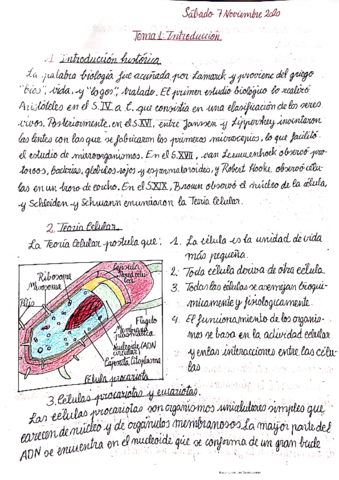 Sábado 7 Noviembre 2020
Tema 1: Introducción
1. Introducción histórica
La palabra biología fue acuñada por Lamarck y proviene del griego
"bios", vida, y "logos", tratado. El primer estudio biológico lo realizó
Aristóteles en el S.IV a.C. que consistía en una clasificación de los seres
vivos. Posteriormente, en el S.XVI, entre Janssen y Lippershey inventaron
las lentes con las que se fabricaron los primeros microscopios, lo que facilitó
el estudio de microorganismos. En el S.XVII, van Leeuwenhock observó pro-
tozoos, bacterias, glóbulos rojos y espermatozoides, y Robert Hooke observó célu-
las en un trozo de corcho. En el S.XIX, Brown observó el núcleo de la célula,
y Schleiden y Schwann enunciaron la Teoría Celular.
2. Teoría Celular.
La Teoría Celular postula que:
1. La célula es la unidad de vida
más pequeña.
2. Toda célula deriva de otra célula.
3. Todas las células se asemejan bioquí-
micamente y fisiológicamente.
4. El funcionamiento de los organis-
mos se basa en la actividad celular
y en las interacciones entre las célu-
las
Ribosoma
Mesosoma
Pilis
Cápsula
Pared celu-
lar
Flagelo
Membrana
plasmática
Nucleoide (ADN
circular)
Citoplasma
Célula procariota
3. Células procariotas y eucariotas.
Las células procariotas son organismos unicelulares simples que
carecen de núcleo y de orgánulos membranosos. La mayor parte del
ADN se encuentra en el nucleoide que se conforma de un gran bucle